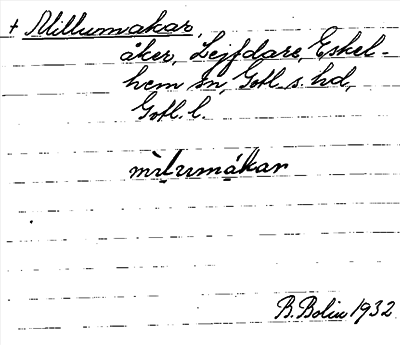 + Millumakar,
åker, Lejfdare, Eskel-
hem sn, Gotl. s. hd,
Gotl. l.
B. Bolin 1932